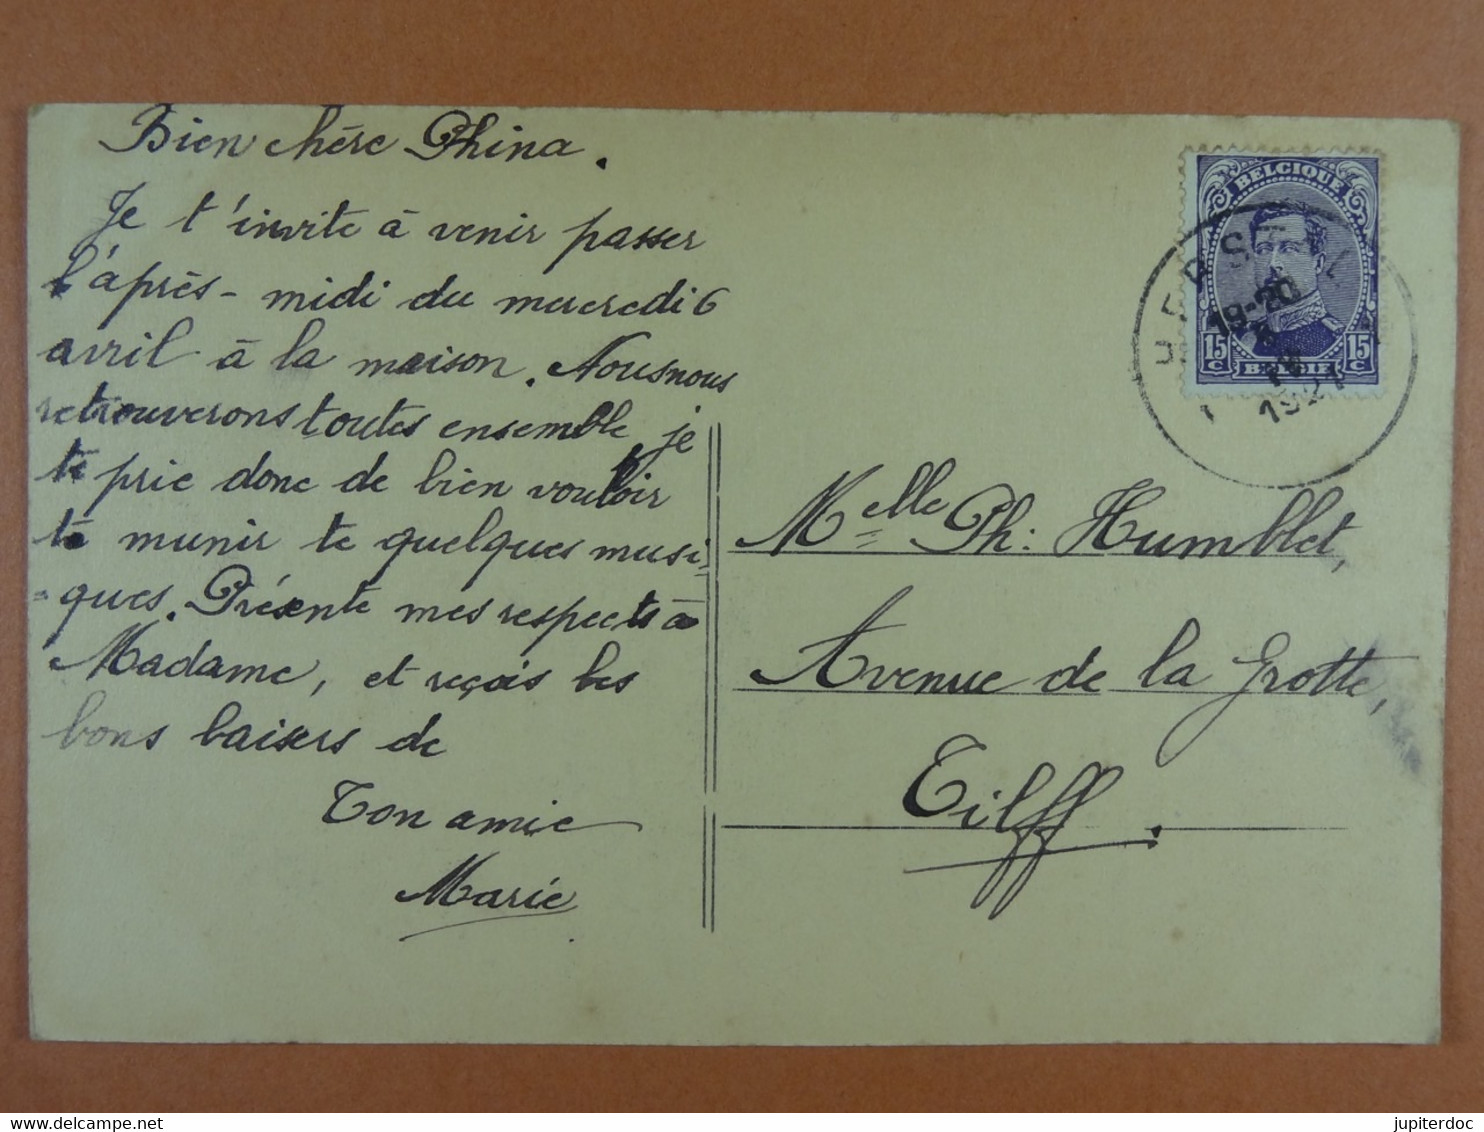 Bien chère Phina.
Je t'invite à venir passer
l'après-midi du mercredi 6
avril à la maison. Nous nous
retrouverons toutes ensemble je
te prie donc de bien vouloir
te munir te quelques musi-
=ques. Présente mes respects à
Madame, et reçois les
bons baisers de
Ton amie
Marie
BELGIQUE
15 C
15 C
BELGIE
HERSTAL
19-20
1921
Melle Ph: Humblet,
Avenue de la Grotte,
Tilff.
jupiterdoc
delcampe.net